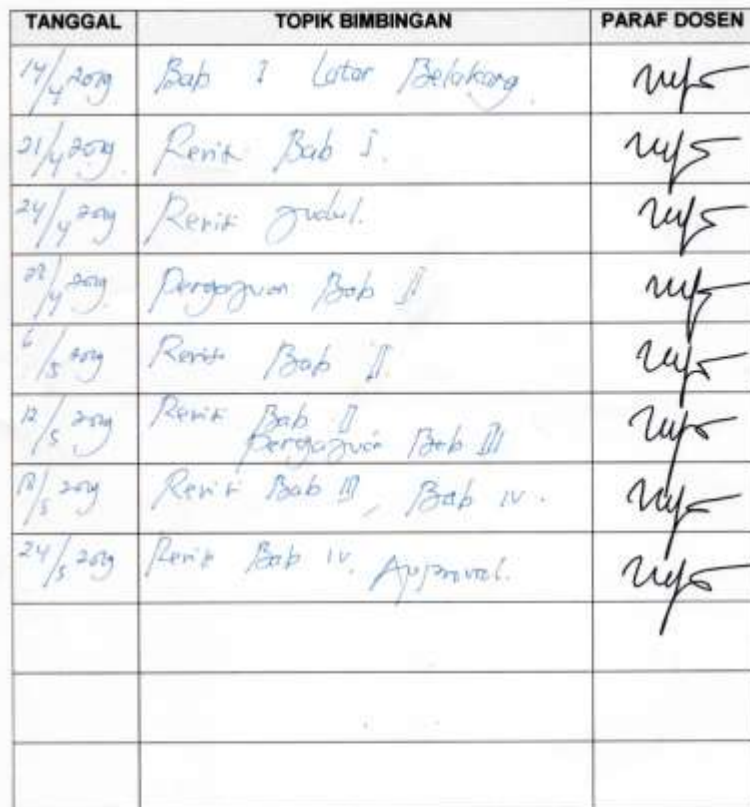 TANGGAL TOPIK BIMBINGAN PARAF DOSEN
14/4 2019 Bab I Latar Belakang.
21/4 2019 Revisi Bab I.
24/4 2019 Revisi Judul.
4 2019 Pengajuan Bab II
6/5 2019 Revisi Bab II.
12/5 2019 Revisi Bab II
Pengajuan Bab III
18/5 2019 Revisi Bab III, Bab IV.
24/5 2019 Revisi Bab IV. Approval.